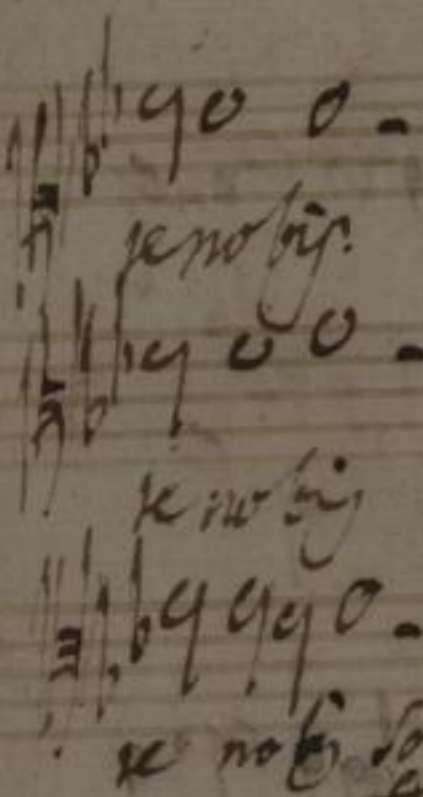 re no bis.
re no bis
re no bis